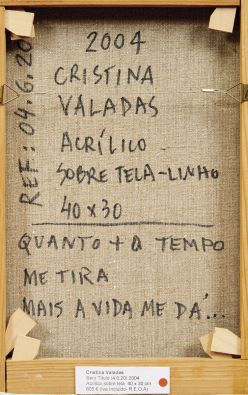 REF: 04.6.20
2004
CRISTINA
VALADAS
ACRÍLICO
SOBRE TELA-LINHO
40x30
QUANTO + O TEMPO
ME TIRA
MAIS A VIDA ME DÁ...
Cristina Valadas
Sem Título (4.6.20) 2004
Acrílico sobre tela 40 x 30 cm
605 € (Iva Incluído- R.E.O.A)